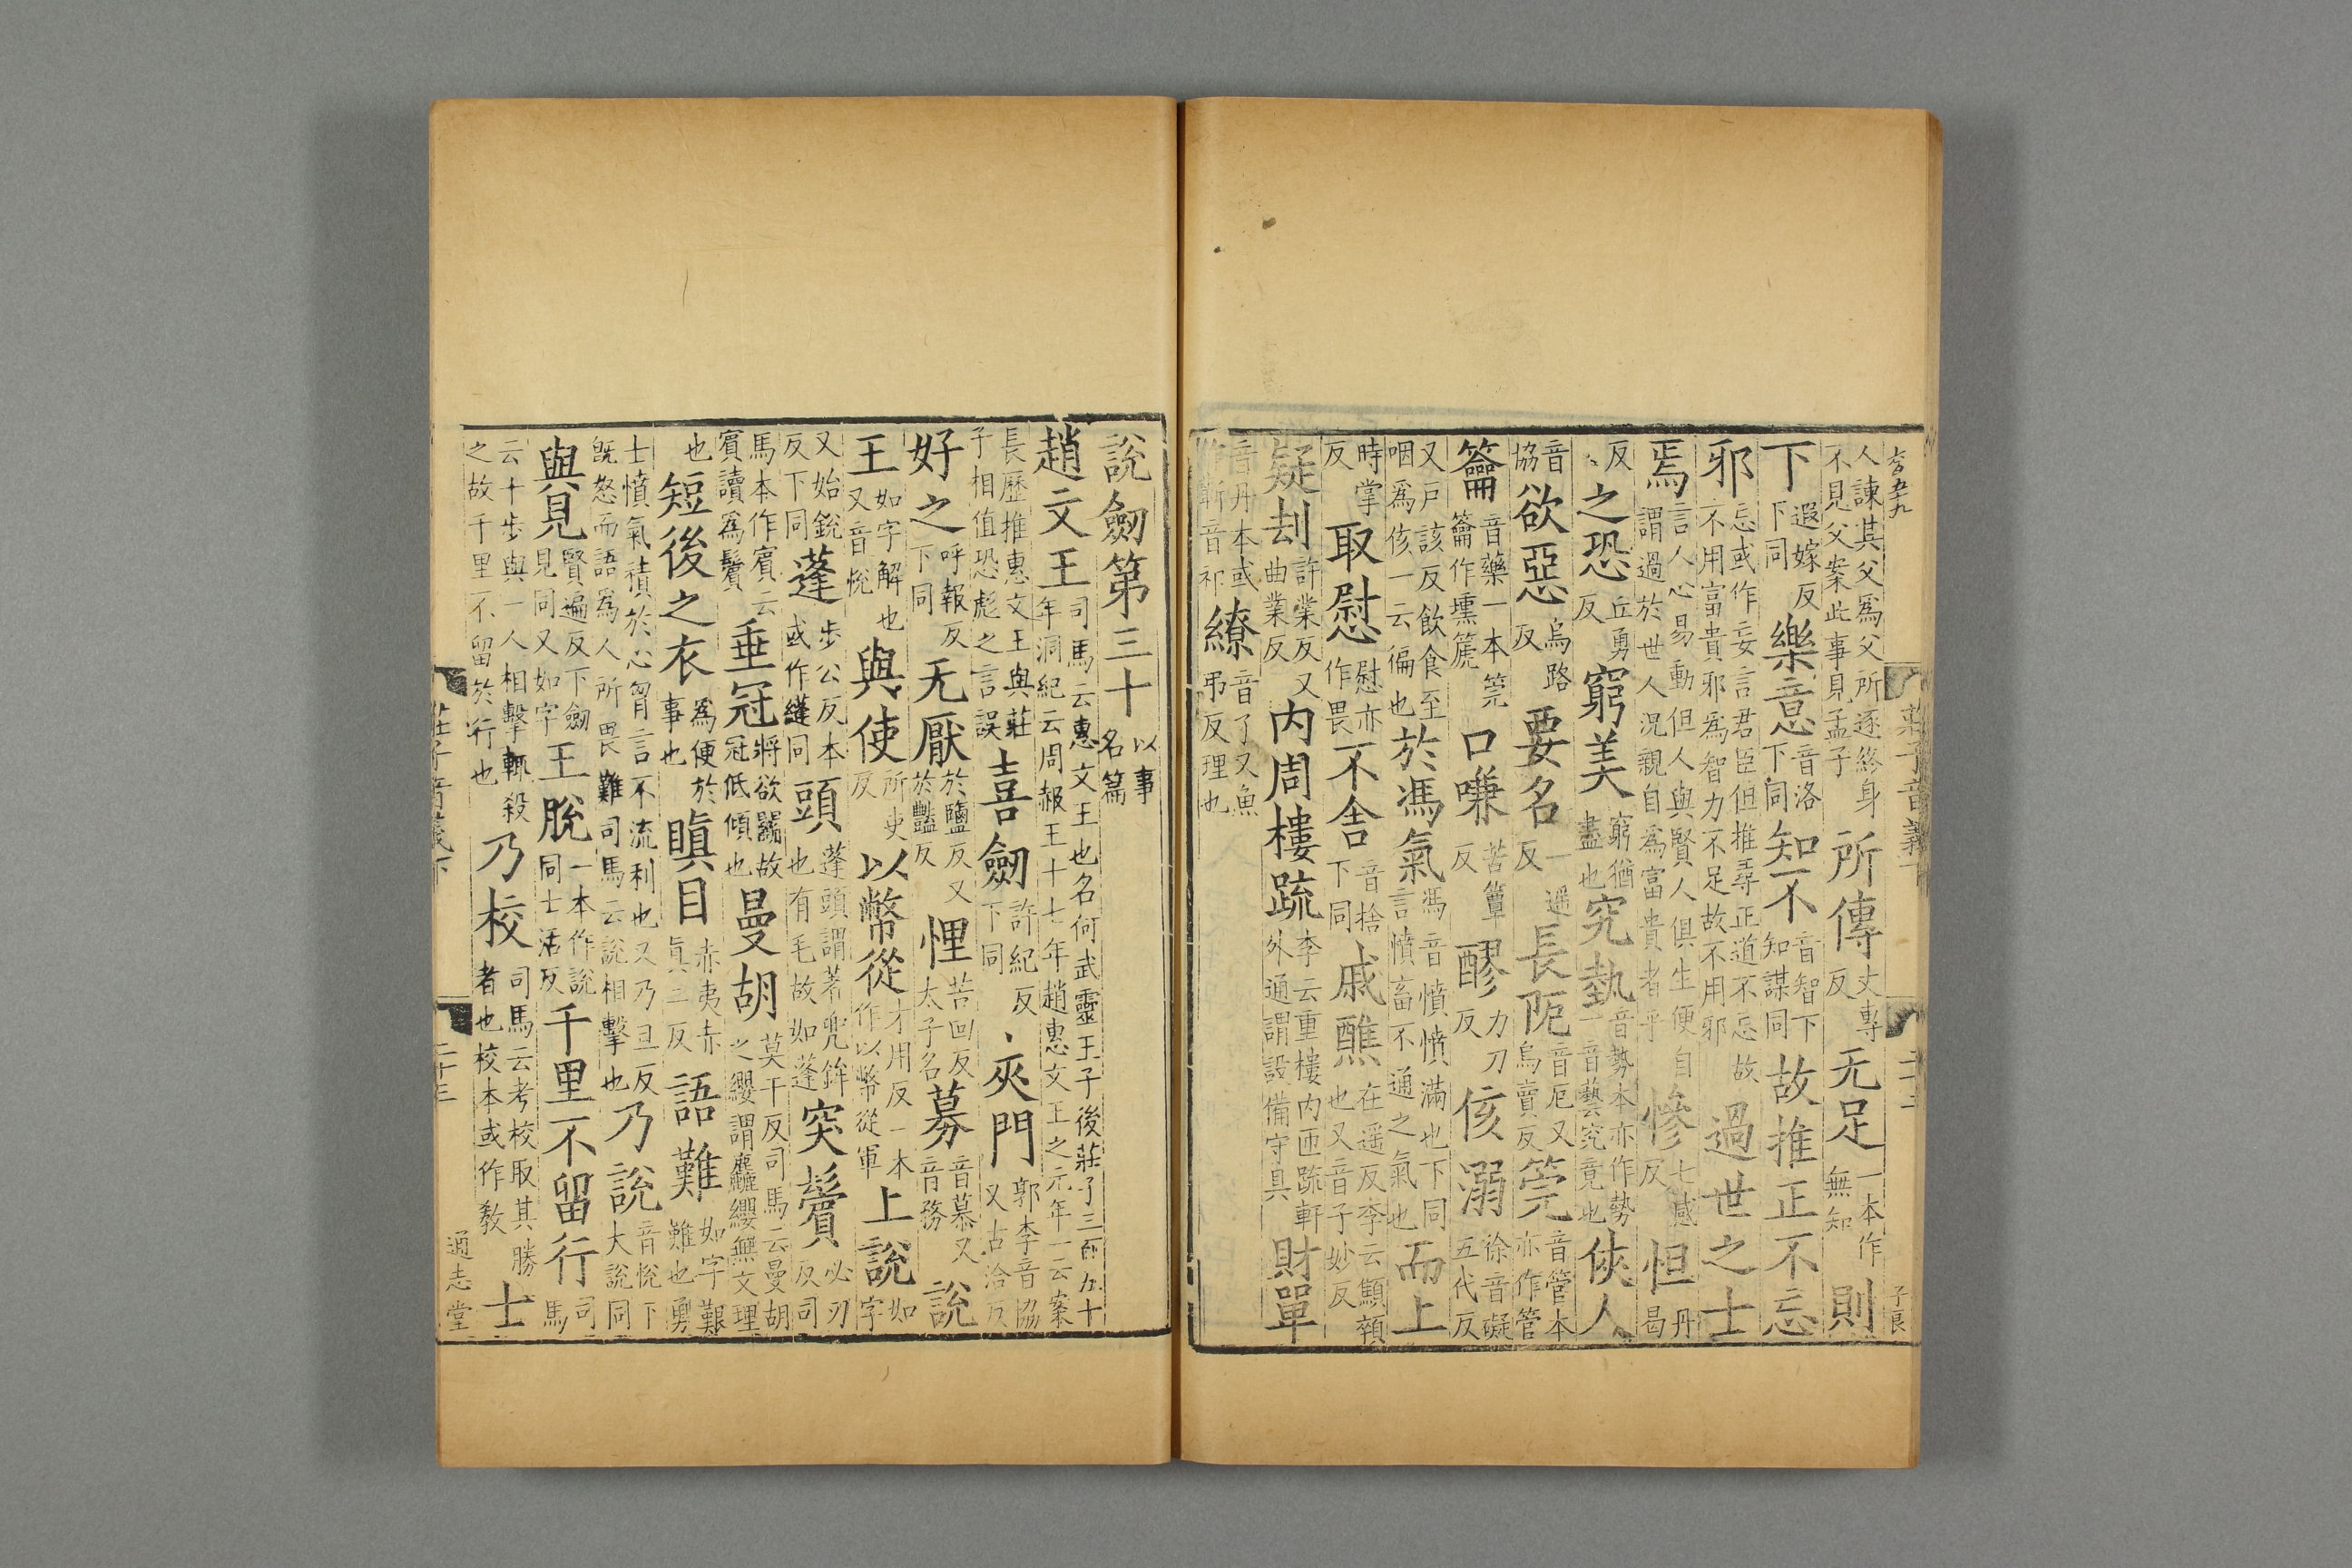 莊子音義下 二十二 子良
人諫其父爲父所逐終身不見父案此事見孟子 所傳 丈專反 无足 一本作無知 則
下 遐嫁反下同 樂意 音洛下同 知不 音智下知謀同 故推正不忘
邪 忘或作妄言君臣但推尋正道不忘故不用富貴邪爲智力不足故不用邪 過世之士
焉 言人心易動但人與賢人俱生便自謂過於世人況親自爲富貴者乎 慘 七感反 怛 丹曷
反 之恐 丘勇反 窮美 窮猶盡也 究埶 音勢本亦作勢一音藝究竟也 俠人
音協 欲惡 烏路反 要名 一遥反 長阨 音厄又烏賣反 筦 音管本亦作管
籥 音藥一本筦籥作壎篪 口嗛 苦簟反 醪 力刀反 侅溺 徐音礙五代反
又戸該反飲食至咽爲侅一云徧也 於馮氣 馮音憤憤滿也下同言憤畜不通之氣也 而上
時掌反 取慰 慰亦作畏 不舍 音捨下同 戚醮 在遥反李云顦顇也又音子妙反
疑刦 許業反又曲業反 内周樓疏 李云重樓内匝疏軒外通謂設備守具 財單
音丹本或音祁 繚 音了又魚弔反理也
說劒第三十 以事名篇
趙文王 司馬云惠文王也名何武靈王子後莊子三百五十年洞紀云周赧王十七年趙惠文王之元年一云案
長歷推惠文王與莊子相值恐彪之言誤 喜劒 許紀反下同 夾門 郭李音協又古洽反
好之 呼報反下同 无厭 於鹽反又於豔反 悝 苦回反太子名 募 音慕又音務 說
王 如字解也又音悅 與使 所吏反 以幣從 才用反一本作以幣從軍 上說 如字
又始銳反下同 蓬 步公反本或作縫同 頭 蓬頭謂著兜鉾也有毛故如蓬 突鬢 必刃反司
馬本作賓云賓讀爲鬢 垂冠 將欲鬬故冠低傾也 曼胡 莫干反司馬云曼胡之纓謂麤纓無文理
也 短後之衣 爲便於事也 瞋目 赤夷赤眞二反 語難 如字艱難也勇
士憤氣積於心胷言不流利也又乃旦反既怒而語爲人所畏難司馬云說相擊也 乃說 音悅下大說同
與見 賢遍反下劒見同又如字 王脫 一本作說同士活反 千里不留行 司馬
云十步與一人相擊輒殺之故千里不留於行也 乃校 司馬云考校取其勝者也校本或作敎 士
莊子音義下 二十三 通志堂